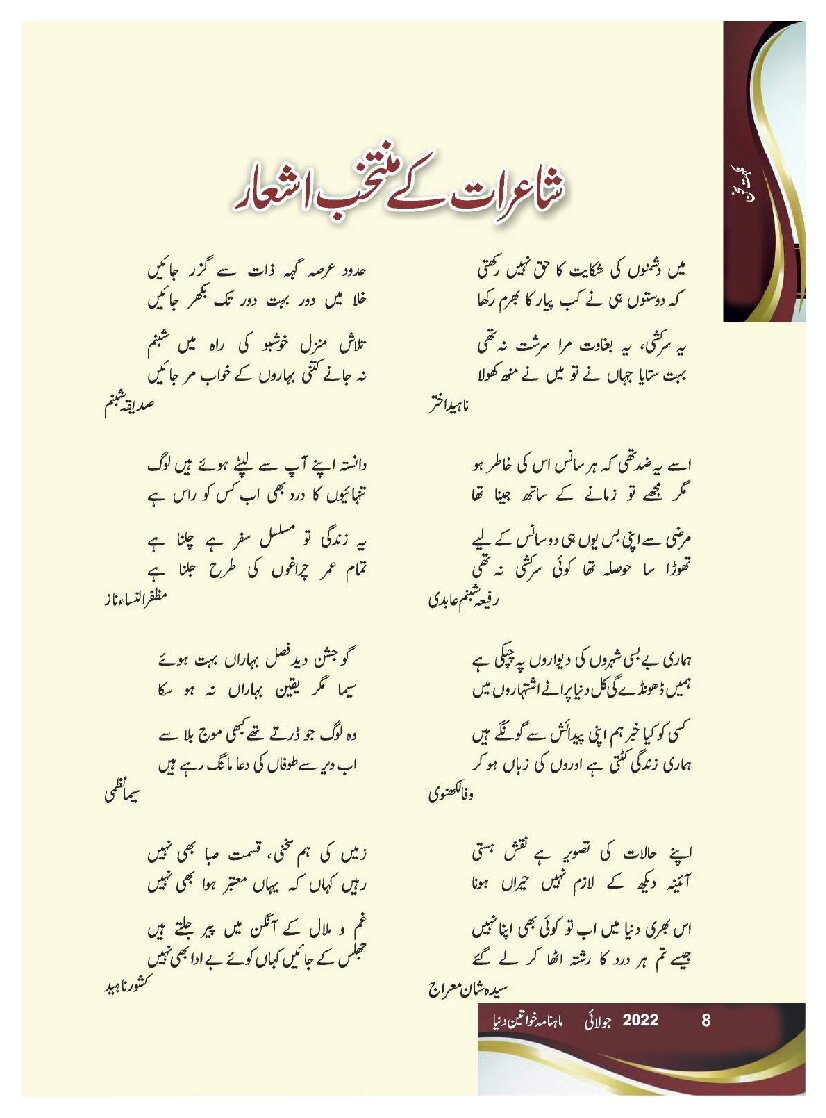 شاعرات کے منتخب اشعار
میں دشمنوں کی شکایت کا حق نہیں رکھتی
کہ دوستوں ہی نے کب پیار کا بھرم رکھا
یہ سرکشی، یہ بغاوت مرا سرشت نہ تھی
بہت ستایا جہاں نے تو میں نے منھ کھولا
ناہید اختر
اسے یہ ضد تھی کہ ہر سانس اس کی خاطر ہو
مگر مجھے تو زمانے کے ساتھ جینا تھا
مرضی سے اپنی بس یوں ہی دو سانس کے لیے
تھوڑا سا حوصلہ تھا کوئی سرکشی نہ تھی
رفیعہ شبنم عابدی
ہماری بے بسی شہروں کی دیواروں پہ چپکی ہے
ہمیں ڈھونڈے گی کل دنیا پرانے اشتہاروں میں
کسی کو کیا خبر ہم اپنی پیدائش سے گونگے ہیں
ہماری زندگی کٹتی ہے اوروں کی زباں ہو کر
وفا لکھنوی
اپنے حالات کی تصویر ہے نقش ہستی
آئینہ دیکھ کے لازم نہیں حیراں ہونا
اس بھری دنیا میں اب تو کوئی بھی اپنا نہیں
جیسے تم ہر درد کا رشتہ اٹھا کر لے گئے
سیدہ شان معراج
حدود عرصہ گہہ ذات سے گزر جائیں
خلا میں دور بہت دور تک بکھر جائیں
تلاش منزل خوشبو کی راہ میں شبنم
نہ جانے کتنی بہاروں کے خواب مر جائیں
صدیقہ شبنم
دانستہ اپنے آپ سے لپٹے ہوئے ہیں لوگ
تنہائیوں کا درد بھی اب کس کو راس ہے
یہ زندگی تو مسلسل سفر ہے چلنا ہے
تمام عمر چراغوں کی طرح جلنا ہے
مظفر النساء ناز
گو جشن دید فصل بہاراں بہت ہوئے
سیما مگر یقین بہاراں نہ ہو سکا
وہ لوگ جو ڈرتے تھے کبھی موج بلا سے
اب دیر سے طوفاں کی دعا مانگ رہے ہیں
سیما نظمی
زمیں کی ہم سخنی، قسمت صبا بھی نہیں
رہیں کہاں کہ یہاں معتبر ہوا بھی نہیں
غم و ملال کے آنگن میں پیر جلتے ہیں
جھلس کے جائیں کہاں کوئے بے ادا بھی نہیں
کشور ناہید
ماہنامہ خواتین دنیا جولائی 2022 8